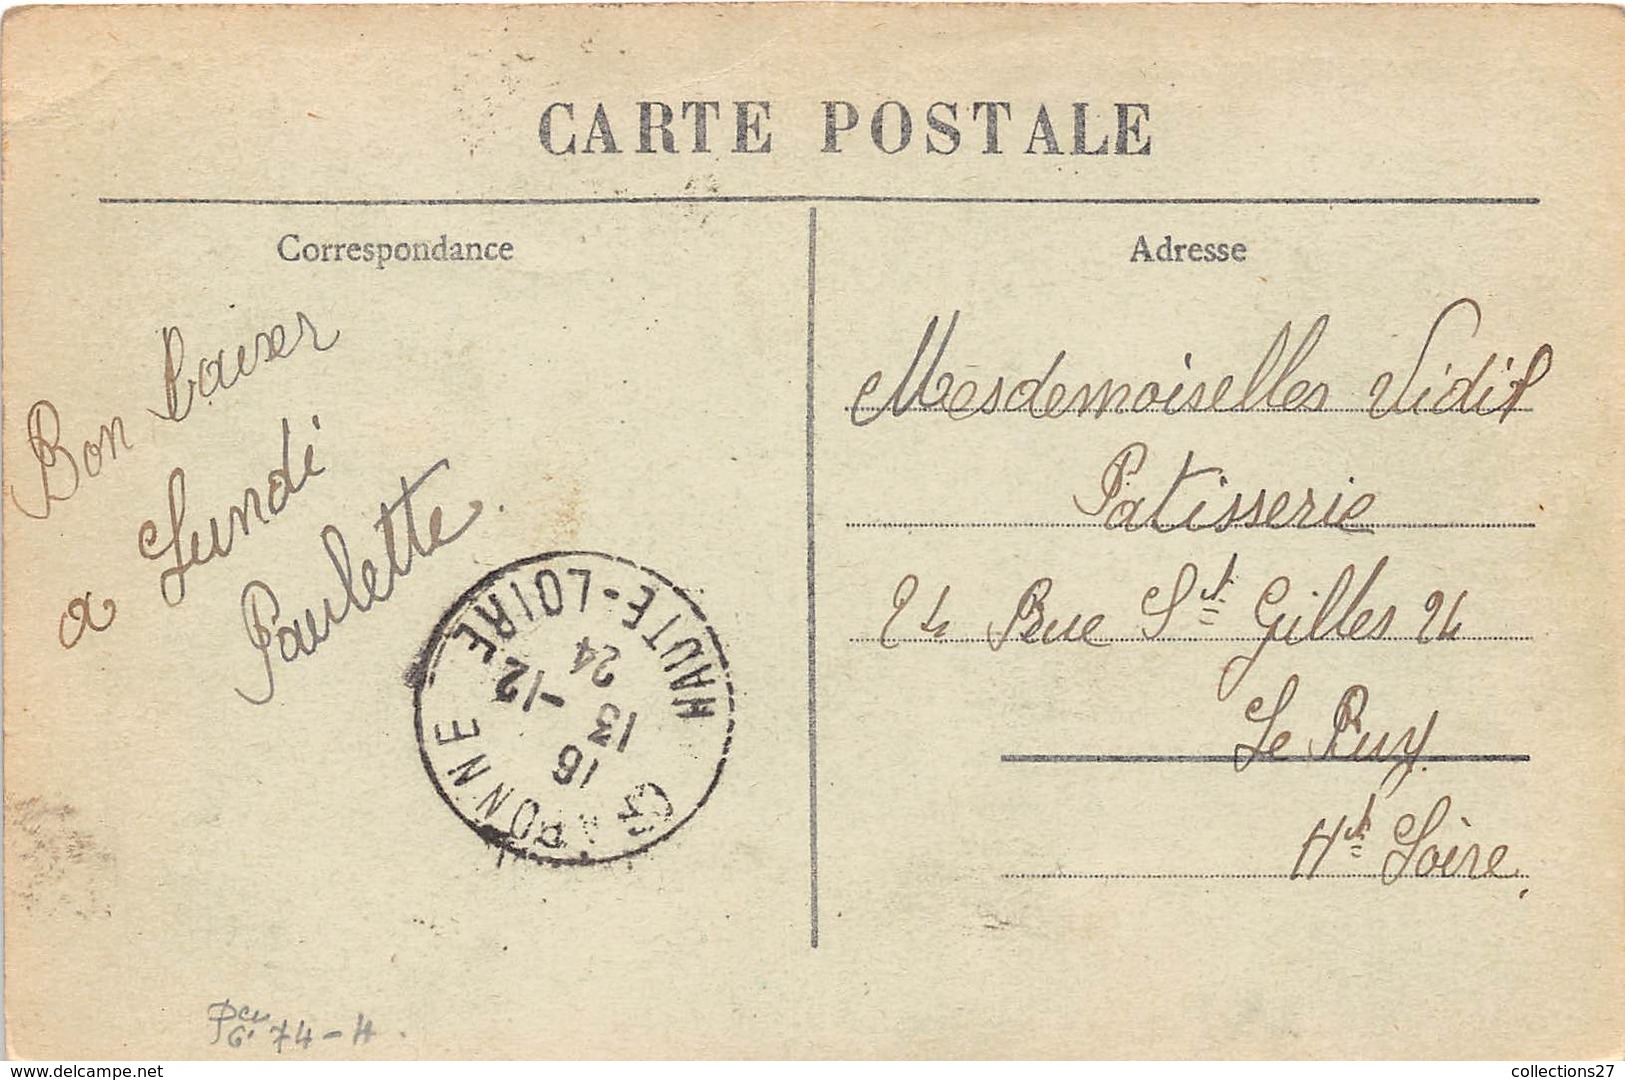 CARTE POSTALE
Correspondance
Adresse
Bon baiser
a Lundi
Paulette.
Mesdemoiselles Vidil
Patisserie
24 Rue St Gilles 24
Le Puy
Hte Loire.
CRAPONNE
HAUTE-LOIRE
16
13 -12
24
74-H.
www.delcampe.net
collections27